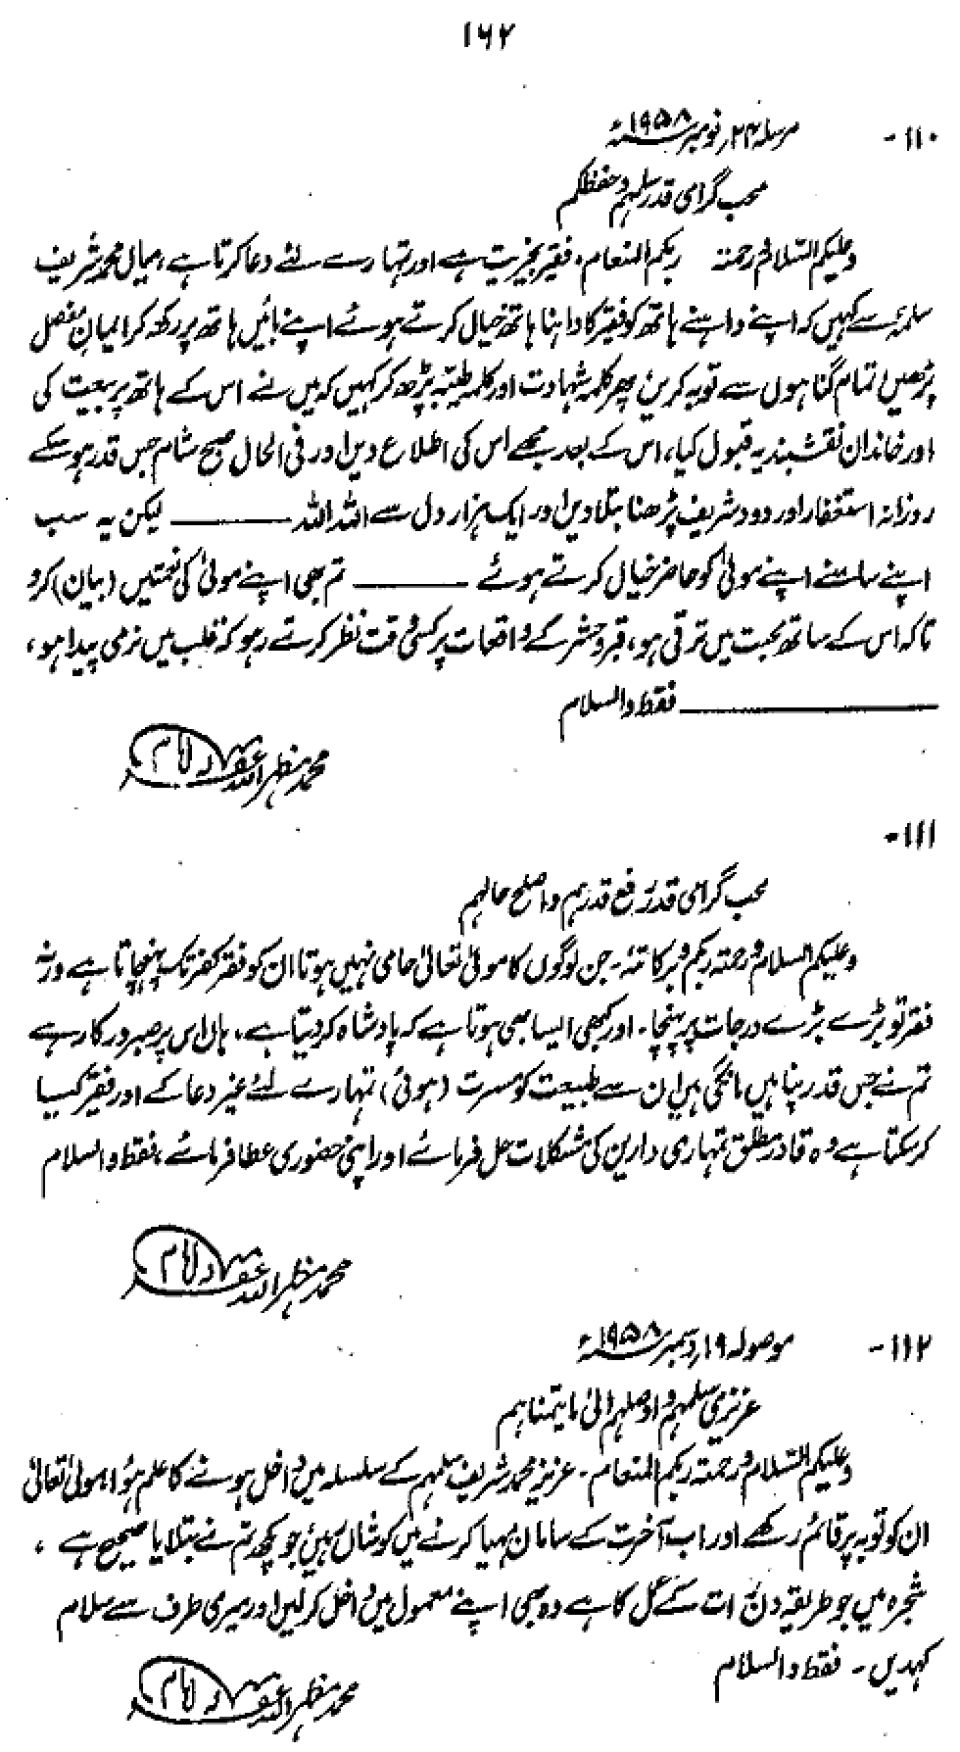 ۱۶۲
۱۱۰- مرسلہ ۲۴؍نومبر ۱۹۵۸ء
محب گرامی قدر سلمہم و حفظکم
وعلیکم السلام ورحمتہ ربکم المنعام، فقیر بخیریت ہے اور تمہارے لئے دعا کرتا ہے، میاں محمد شریف
سلمہٗ سے کہیں کہ اپنے داہنے ہاتھ کو فقیر کا داہنا ہاتھ خیال کرتے ہوئے اپنے بائیں ہاتھ پر رکھ کر ایمان مفصل
پڑھیں تمام گناہوں سے توبہ کریں پھر کلمہ شہادت اور کلمہ طیبہ پڑھ کر کہیں کہ میں نے اس کے ہاتھ پر بیعت کی
اور خاندان نقشبندیہ قبول کیا، اس کے بعد مجھے اس کی اطلاع دیں اور فی الحال صبح شام جس قدر ہو سکے
روزانہ استغفار اور درود شریف پڑھنا بتلا دیں اور ایک ہزار دل سے اللہ اللہ ——— لیکن یہ سب
اپنے سامنے اپنے مولیٰ کو حاضر خیال کرتے ہوئے ——— تم بھی اپنے مولیٰ کی نعمتیں (بیان) کرو
تاکہ اس کے ساتھ محبت میں ترقی ہو، قبر و حشر کے واقعات پر کسی وقت نظر کرتے رہو کہ قلب میں نرمی پیدا ہو،
——— فقط والسلام
محمد مظہر اللہ غفرلہ الامام
۱۱۱-
محب گرامی قدر رفع قدرہم واصلح حالہم
وعلیکم السلام ورحمتہ ربکم وبرکاتہٗ۔ جن لوگوں کا مولیٰ تعالیٰ حامی نہیں ہوتا ان کو فقر کفر تک پہنچاتا ہے ورنہ
فقر تو بڑے بڑے درجات پر پہنچا۔ اور کبھی ایسا بھی ہوتا ہے کہ بادشاہ کر دیتا ہے، ہاں اس پر صبر درکار ہے
تم نے جس قدر پناہیں مانگی ہیں ان سے طبیعت کو مسرت (ہوئی) تمہارے لئے غیر دعا کے اور فقیر کیا
کر سکتا ہے وہ قادر مطلق تمہاری دارین کی مشکلات حل فرمائے اور اپنی حضوری عطا فرمائے، فقط والسلام
محمد مظہر اللہ غفرلہ الامام
۱۱۲- موصولہ ۱۹؍دسمبر ۱۹۵۸ء
عزیزی سلمہم واوصلہم الیٰ مایتمناہم
وعلیکم السلام ورحمتہ ربکم المنعام۔ عزیز محمد شریف سلمہم کے سلسلہ میں داخل ہونے کا علم ہوا، مولیٰ تعالیٰ
ان کو توبہ پر قائم رکھے اور اب آخرت کے سامان مہیا کرنے میں کوشاں رہیں جو کچھ تم نے بتلایا صحیح ہے،
شجرہ میں جو طریقہ دن رات کے عمل کا ہے وہ بھی اپنے معمول میں داخل کر لیں اور میری طرف سے سلام
کہدیں۔ فقط والسلام
محمد مظہر اللہ غفرلہ الامام